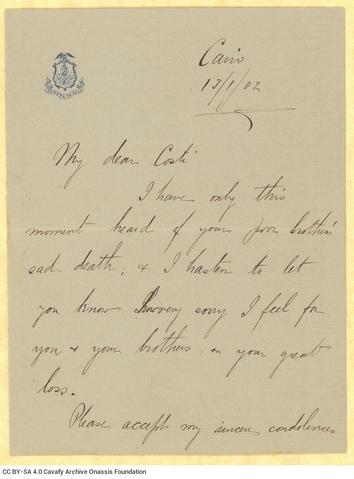 Cairo
13/1/02.
My dear Costi
I have only this
moment heard of your poor brother's
sad death, & I hasten to let
you know how very sorry I feel for
you & your brothers in your great
loss.
Please accept my sincere condolences
CC BY-SA 4.0 Cavafy Archive Onassis Foundation